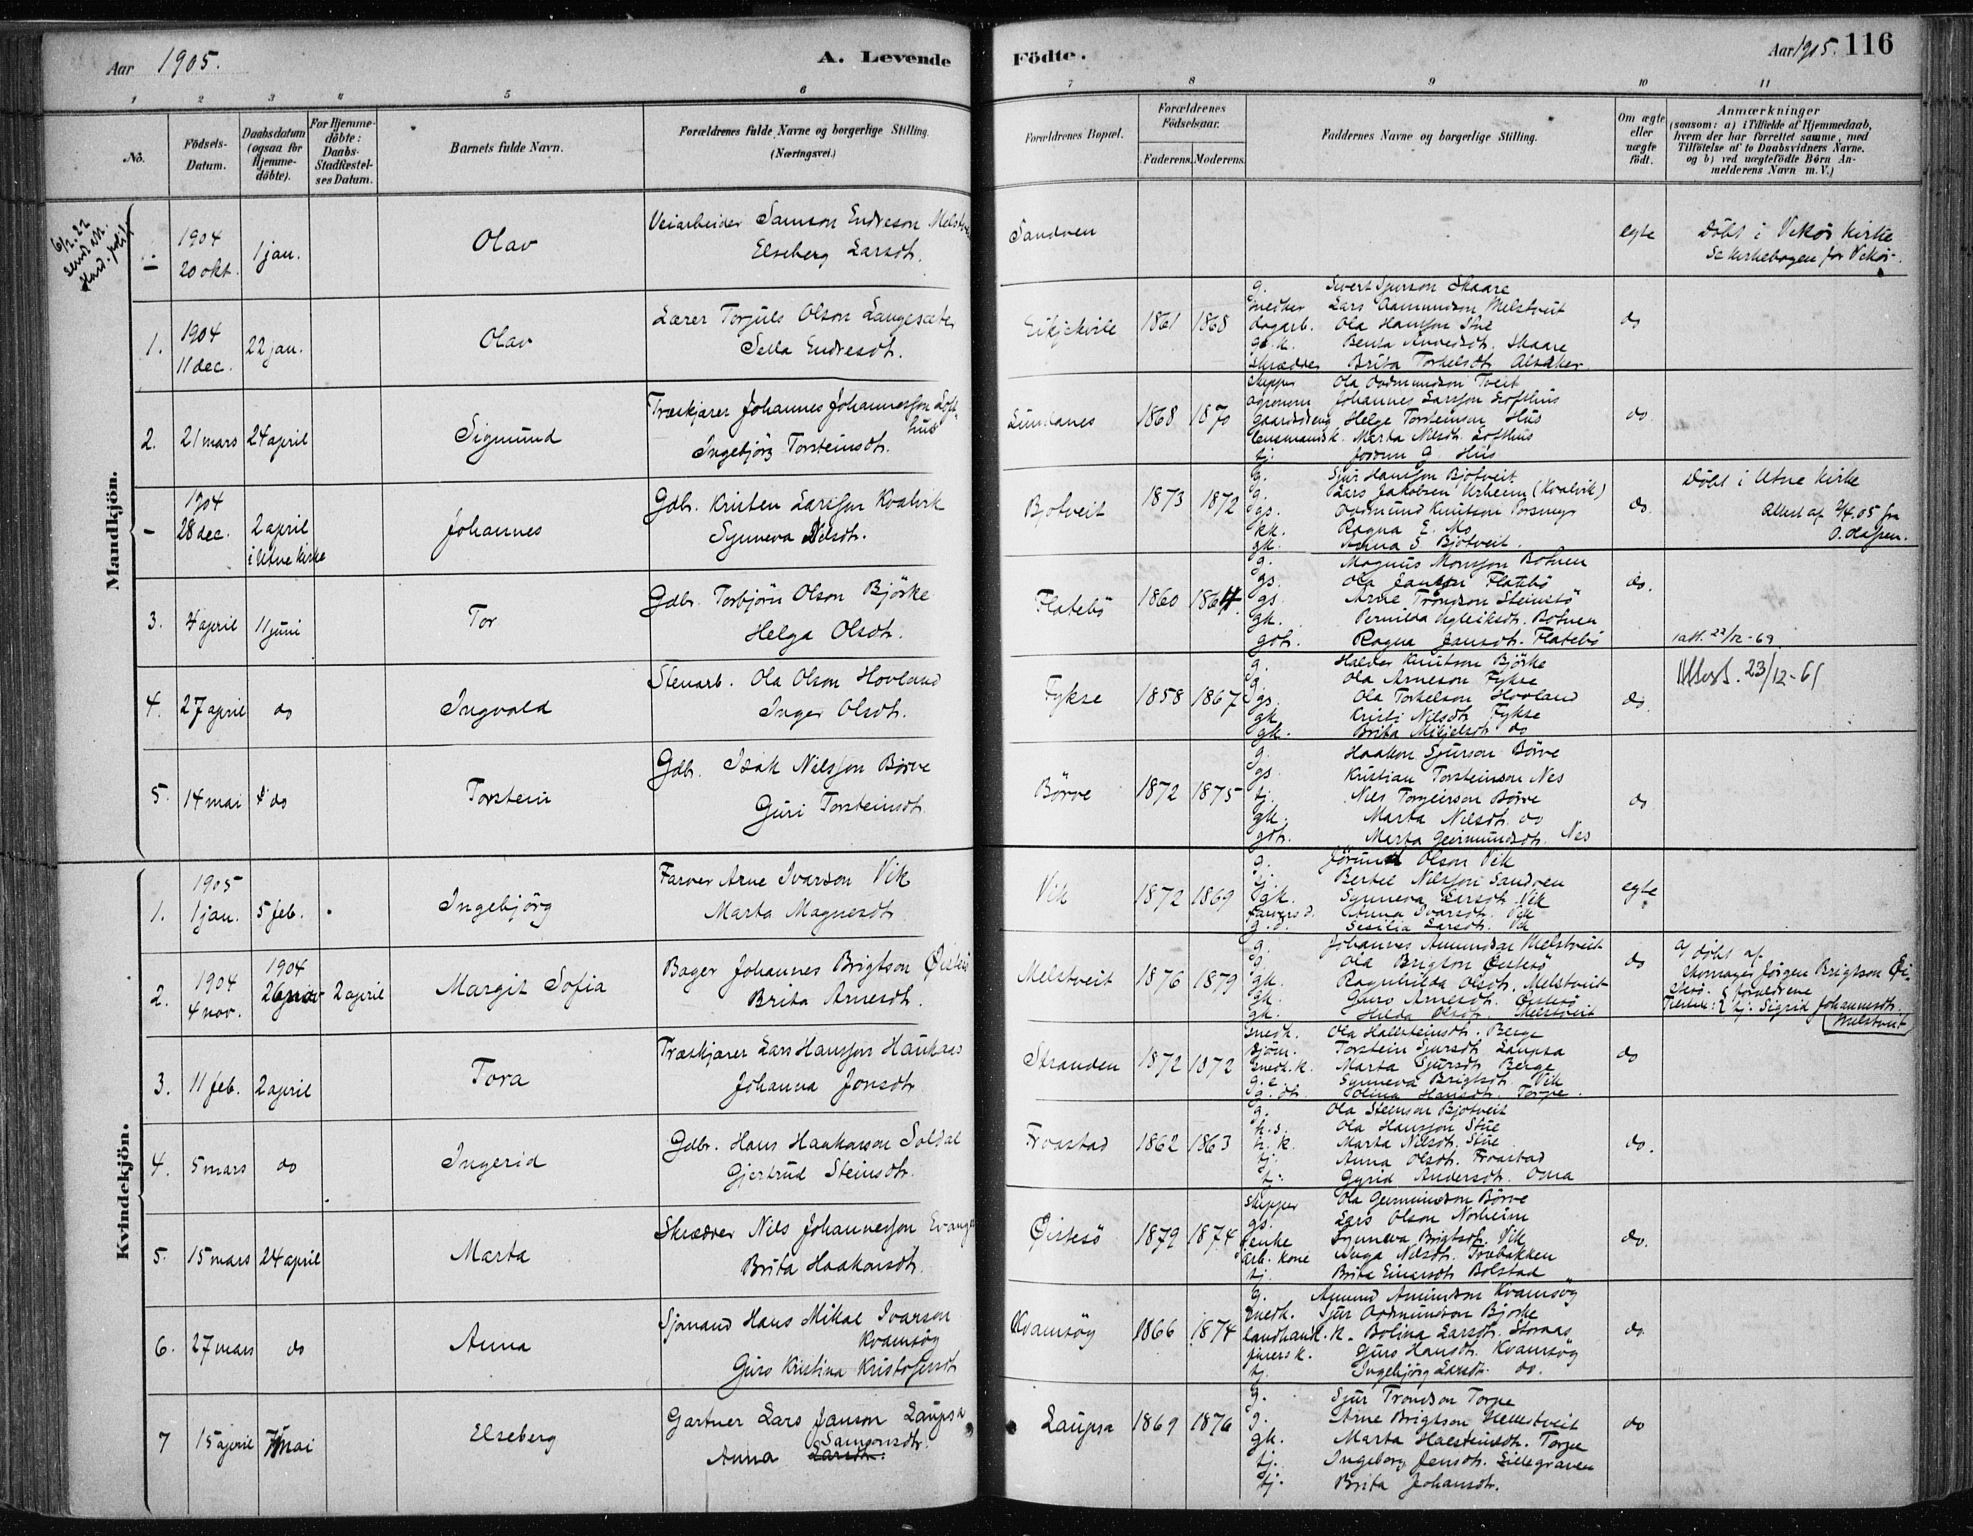 Aar 1905.
A. Levende
Födte.
Aar 1905. 116
1 2 3 4 5 6 7 8 9 10 11
No.
Födsels-
Datum.
Daabsdatum
(ogsaa for
Hjemme-
döbte).
For Hjemme-
döbte:
Daabs-
Stadfæstel-
ses Datum.
Barnets fulde Navn.
Forældrenes fulde Navne og borgerlige Stilling.
(Næringsvei.)
Forældrenes Bopæl.
Forældrenes
Födselsaar.
Faderens. Moderens.
Faddernes Navne og borgerlige Stilling.
Om ægte
eller
uægte
födt.
Anmærkninger
(saasom: a) i Tilfælde af Hjemmedaab,
hvem der har forrettet samme, med
Tilföielse af to Daabsvidners Navne.
og b) ved uægtefödte Börn An-
melderens Navn m. V.)
Mandkjön.
1904
20 okt. 1 jan. Olav
Veiarbeider Samson Endreson
Elseberg Larsdt.
Sandven
egte
Döbt i Vikör kirke
Se kirkebogen for Vikör.
1. 1904
11 dec. 22 jan. Olav
Lærer Torjuls Olson Langesæter
Sella Endresdt.
1861 1868
g. Sivert Sjurson Skaare
Snedker Lars Aamundson Melstveit
dagarb. Ola Hansson Stue
Skaare
Skrædder Brita Torkelsdt. Alsaker
do
2. 21 mars 24 april Sigmund
Træskjærer Johannes Johannesson Loft-
hus
Ingebjörg Torsteinsdt.
1868 1870
Skipper Ola Oddmundson Tveit
Agronom Johannes Larsson Lofthus
Helge Torsteinson Hus
Lensmandsk. Marta Nilsdt. Lofthus
tj. Hus
do
- 1904
28 dec. 2 april
i Utne kirke
Johannes
Gdbr. Kristen Larsson Kvalvik
Synneva Nilsdt.
Bjotveit 1873 1872
g. Sjur Hansson Bjotveit
g. Lars Jakobsen Urheim (Kvalvik)
gs. Oddmund Knutson
Ragna E. Mo
gk. Anna S Bjotveit.
do.
Döbt i Utne kirke
Attest af 2/4.05 fra
O. Olafsen.
3. 4 april 11 juni Tor
Gdbr. Torbjörn Olson Björke
Helga Olsdt.
Flatebö 1860 1864
g. Magnus Monsson Botnen
gs. Ola Flatebö
gs. Arne Trondson Steinstö
gk. Pernilla Botnen
gdt. Ragna Jansdt. Flatebö
do.
22/12-69
4. 27 april do Ingvald
Stenarb. Ola Olson Hovland
Inger Olsdt.
Fykse 1858 1867
g. Halder Knutson Björke
g. Ola Arneson Fykse
gs. Ola Torkelson Hovland
gk. Kristi Nilsdt. Fykse
gk. Brita do
do.
Attest. 23/12-61
5. 14 mai do Torstein
Gdbr. Isak Nilsson Börve
Guri Torsteinsdt.
Börve 1872 1875
g. Haakon Sjurson Börve
gs. Kristian Torsteinson Nes
tj. Nils Torgeirson Börve
gk. Marta Nilsdt. do
gdt. Marta Geirmundsdt. Nes
do
Kvindekjön.
1. 1905
1 jan. 5 feb. Ingebjörg
Farver Arne Ivarson Vik
Marta Magnesdt
Vik 1872 1869
g. Jörund Olson Vik
tj. Bertel Nilsson Sandven
gk. Synneva Larsdt. Vik
Farversd. Anna Ivarsdt. Vik
g.d. Sesilia Larsdt. Vik
egte
2. 1904
4 nov. 1904
26 nov 2 april Margit Sofia
Bager Johannes Brigtson Öistesö
Brita Arnesdt.
Melstveit 1876 1879
g. Johannes Amundson Melstveit
g. Ola Brigtson Öistesö
gk. Ragnhilda Olsdt. Melstveit
gk. Guro Arnesdt. Öistesö
gk. Hilda Olsdt. Melstveit
do
a) döbt af
skomager Jörgen Brigtson Öi-
stesö. forældrene
tj. Sigrid Johannesdt.
Melstveit
3. 11 feb. 2 april Tora
Træskjærer Lars Hansson Haukaas
Johanna Jonsdt
Stranden 1872 1872
Snedk. Ola Hallsteinsdt. Berge
Sjöm. Torstein Sjursdt Laupsa
Snedk.k. Marta Sjursdt. Berge
Synneva Brigtsdt. Vik
g.dt. Hansdt. Torpe.
do
4. 5 mars do Ingerid
Gdbr. Hans Haakonson Soldal
Gjertrud Steinsdt.
Froastad 1862 1863
g. Ola Steinson Bjotveit
h.s. Ola Hansson Stue
h.k. Marta Nilsdt. Stue
tj. Anna Olsdt. Froastad
tj. Gyrid Andersdt. Oma
do.
5. 15 mars 24 april Marta
Skrædder Nils Johannesson Evanger
Brita Haakonsdt.
Öistesö 1879 1874
Skipper Ola Geirmundson Börve
gs. Lars Olson Norheim
enke Synneva Brigtsdt. Vik
arb. kone Inga Nilsdt. Trobakken
tj. Brita Einarsdt Bolstad
do.
6. 27 mars do Anna
Sjömand Hans Mikal Ivarson
Kvamsög
Guro Kristina Kristofersdt
Kvamsög 1866 1874
g. Amund Amundson Kvamsög
Snedk. Sjur Oddmundson Björke
landhand.k. Bolina Larsdt. Storaas
Guro Hansdt. Kvamsög
tj. Ingebjörg Larsdt. do.
do
7 15 april 7 mai Elseberg
Gartner Lars Janson Laupsa
Samsonsdt.
Anna Larsdt.
Laupsa 1869 1876
g. Sjur Trondson Torpe
g. Arne Brigtson Melstveit
gk. Marta Halsteinsdt. Torpe
tj. Ingeborg Jensdt. Lillegraven
tj. Brita Johansdt.
do